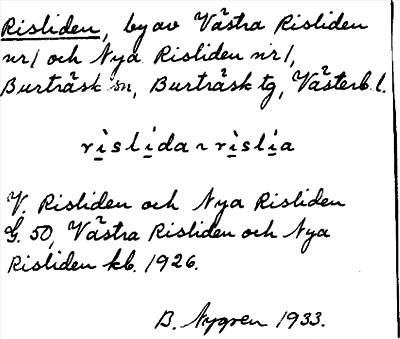 Risliden, by av Västra Risliden
nr 1 och Nya Risliden nr 1,
Burträsk sn, Burträsk tg, Västerb. l.
rislida ~ rislia
V. Risliden och Nya Risliden
G. 50, Västra Risliden och Nya
Risliden kb. 1926.
B. Nygren 1933.